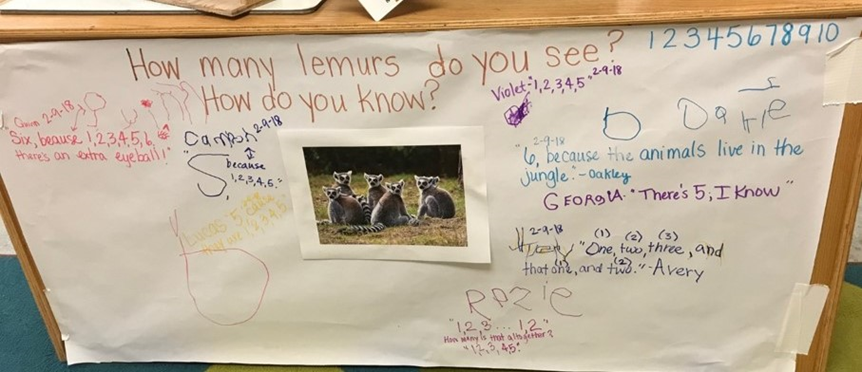 How many lemurs do you see?
How do you know?
1 2 3 4 5 6 7 8 9 10
2-9-18
Six, beause 1,2,3,4,5,6,
there's an extra eyeball!"
2-9-18
5,
because
1,2,3,4,5."
Lucas "5,
1,2,3,4,5"
Violet- "1,2,3,4,5" 2-9-18
2-9-18
"6, because the animals live in the
jungle." -Oakley
GEORGIA- "There's 5; I know"
2-9-18 (1) (2) (3)
"One, two, three, and
that one, and two." -Avery
(1) (2)
RAZiE
"1,2,3 ... 1,2"
How many is that altogether?
"1,2,3,4,5."